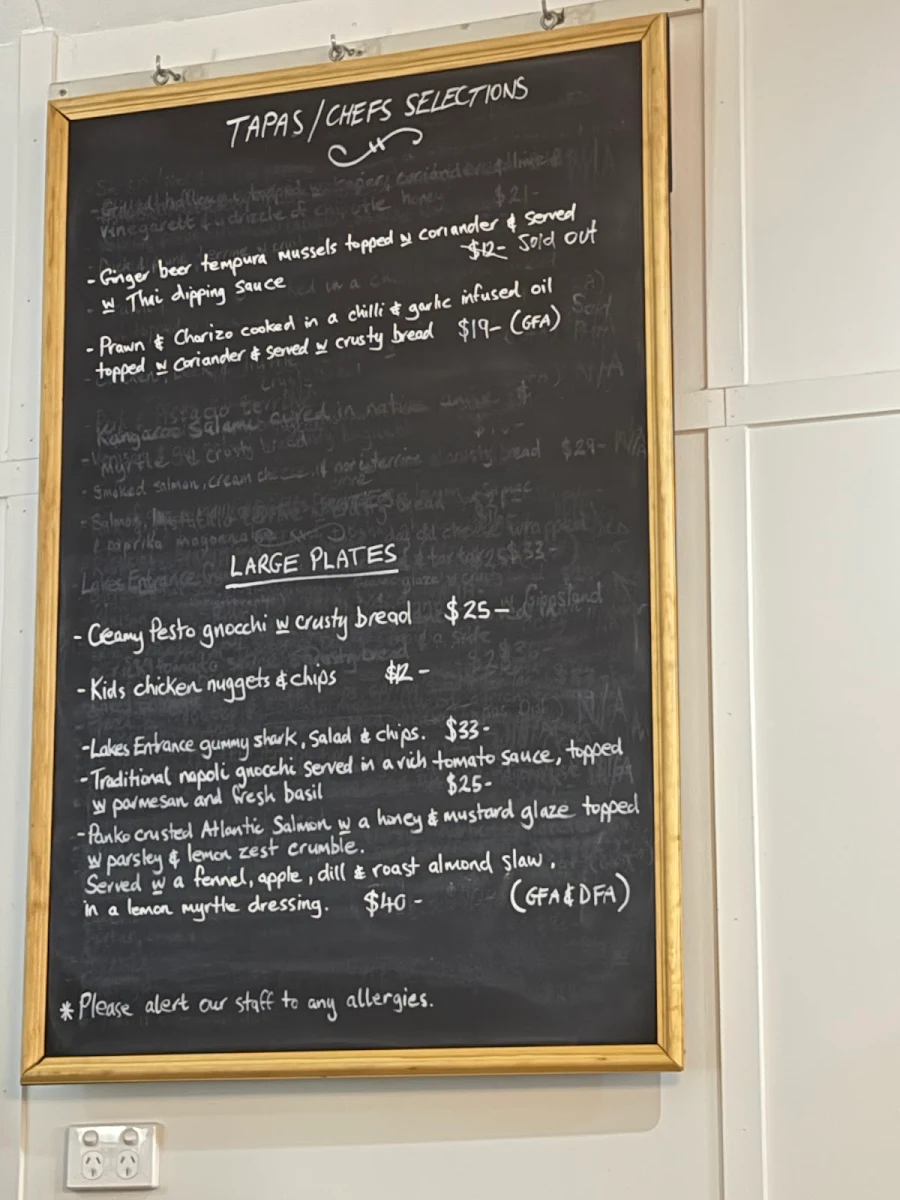 TAPAS/CHEFS SELECTIONS
- Ginger beer tempura mussels topped w coriander & served
w Thai dipping sauce $12- Sold out
- Prawn & Chorizo cooked in a chilli & garlic infused oil
topped w coriander & served w crusty bread $19- (GFA)
Kangaroo Salami cured in native
Myrtle & crusty bread
- Smoked salmon, cream crusty bread $29- N/A
LARGE PLATES
Lakes Entrance
- Creamy Pesto gnocchi w crusty bread $25-
- Kids chicken nuggets & chips $12-
- Lakes Entrance gummy shark, salad & chips. $33-
- Traditional napoli gnocchi served in a rich tomato sauce, topped
w parmesan and fresh basil $25-
- Panko crusted Atlantic Salmon w a honey & mustard glaze topped
w parsley & lemon zest crumble.
Served w a fennel, apple, dill & roast almond slaw.
in a lemon myrtle dressing. $40- (GFA & DFA)
* Please alert our staff to any allergies.